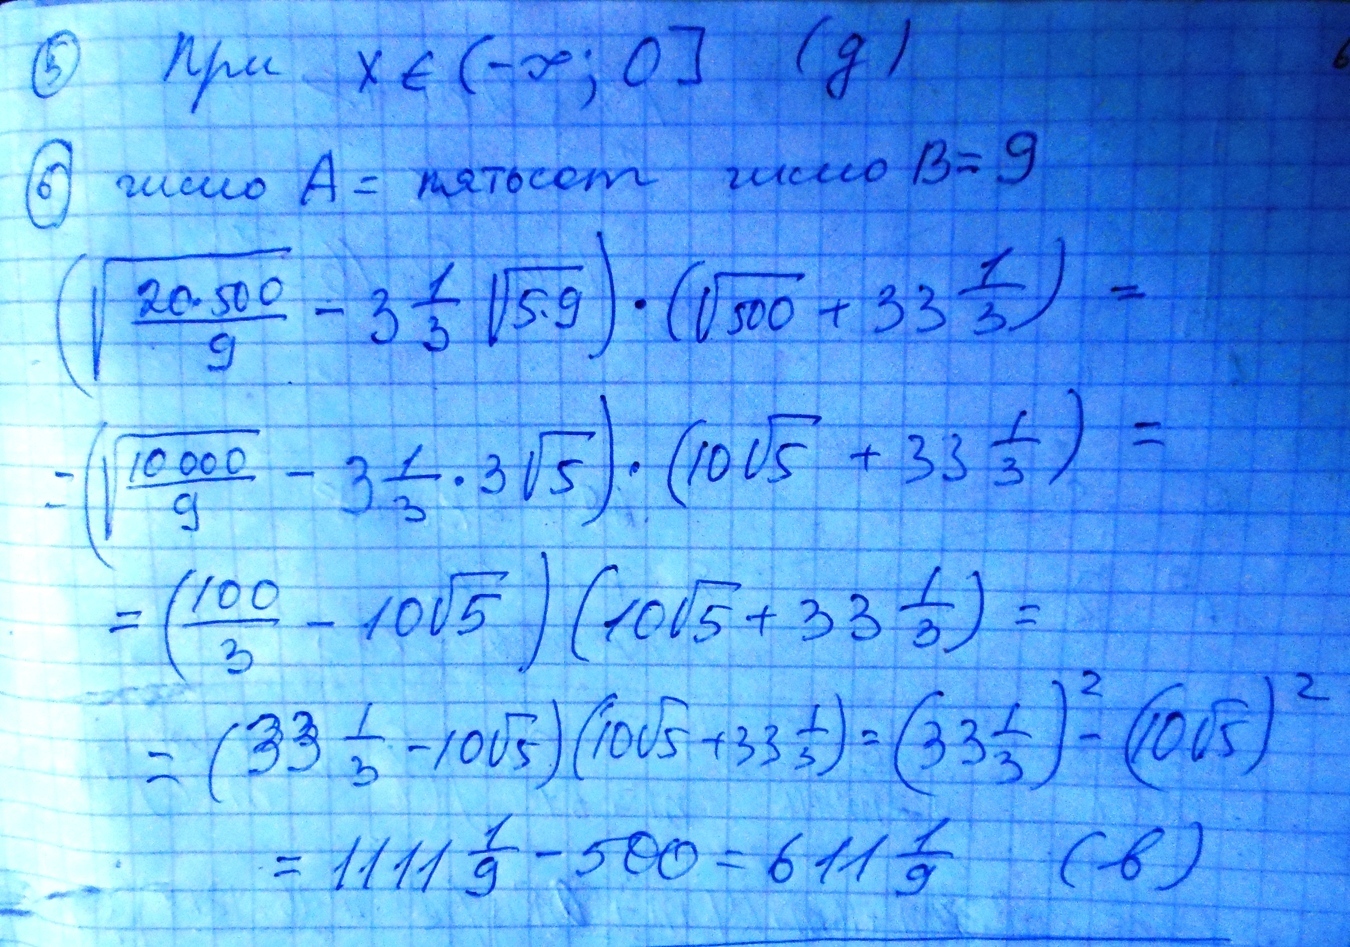 ⑤ При x ∈ (-∞; 0] (д)
⑥ число A = пятьсот число B = 9
(√(20·500/9) - 3 1/3 √(5·9)) · (√500 + 33 1/3) =
= (√(10 000/9) - 3 1/3 · 3√5) · (10√5 + 33 1/3) =
= (100/3 - 10√5) (10√5 + 33 1/3) =
= (33 1/3 - 10√5)(10√5 + 33 1/3) = (33 1/3)² - (10√5)²
= 1111 1/9 - 500 = 611 1/9 (в)